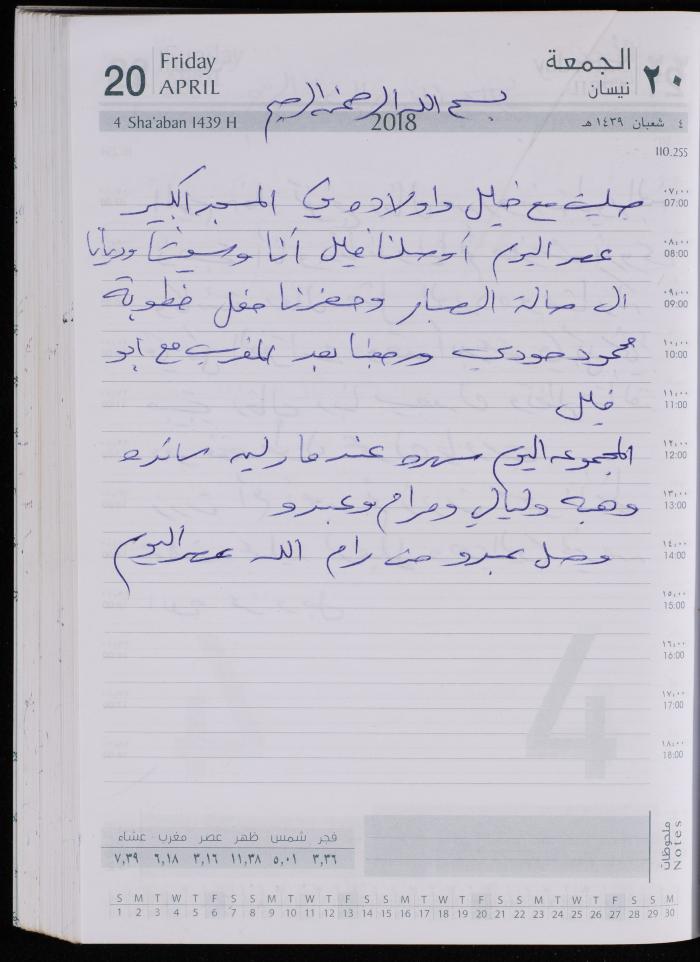 20 Friday APRIL الجمعة نيسان ٢٠
بسم الله الرحمن الرحيم
4 Sha'aban 1439 H 2018 ٤ شعبان ١٤٣٩ هـ
110.255
صليت مع خليل واولاده في المسجد الكبير ٠٧:٠٠ 07:00
عصر اليوم أوصلنا خليل أنا و وديانا ٠٨:٠٠ 08:00
الى صالة الصبار وحضرنا حفل خطوبة ٠٩:٠٠ 09:00
محمود حودي ورجعنا بعد المغرب مع ابو ١٠:٠٠ 10:00
خليل ١١:٠٠ 11:00
المجموعه اليوم سهره عند مارلين سائده ١٢:٠٠ 12:00
وهبه وليالي ومرام وعبدو ١٣:٠٠ 13:00
وصل عبدو من رام الله عصر اليوم ١٤:٠٠ 14:00
١٥:٠٠ 15:00
١٦:٠٠ 16:00
١٧:٠٠ 17:00
١٨:٠٠ 18:00
4
فجر شمس ظهر عصر مغرب عشاء
٣,٣٦ ٥,٠١ ١١,٣٨ ٣,١٦ ٦,١٨ ٧,٣٩
ملحوظات
Notes
S M T W T F S S M T W T F S S M T W T F S S M T W T F S S M
1 2 3 4 5 6 7 8 9 10 11 12 13 14 15 16 17 18 19 20 21 22 23 24 25 26 27 28 29 30